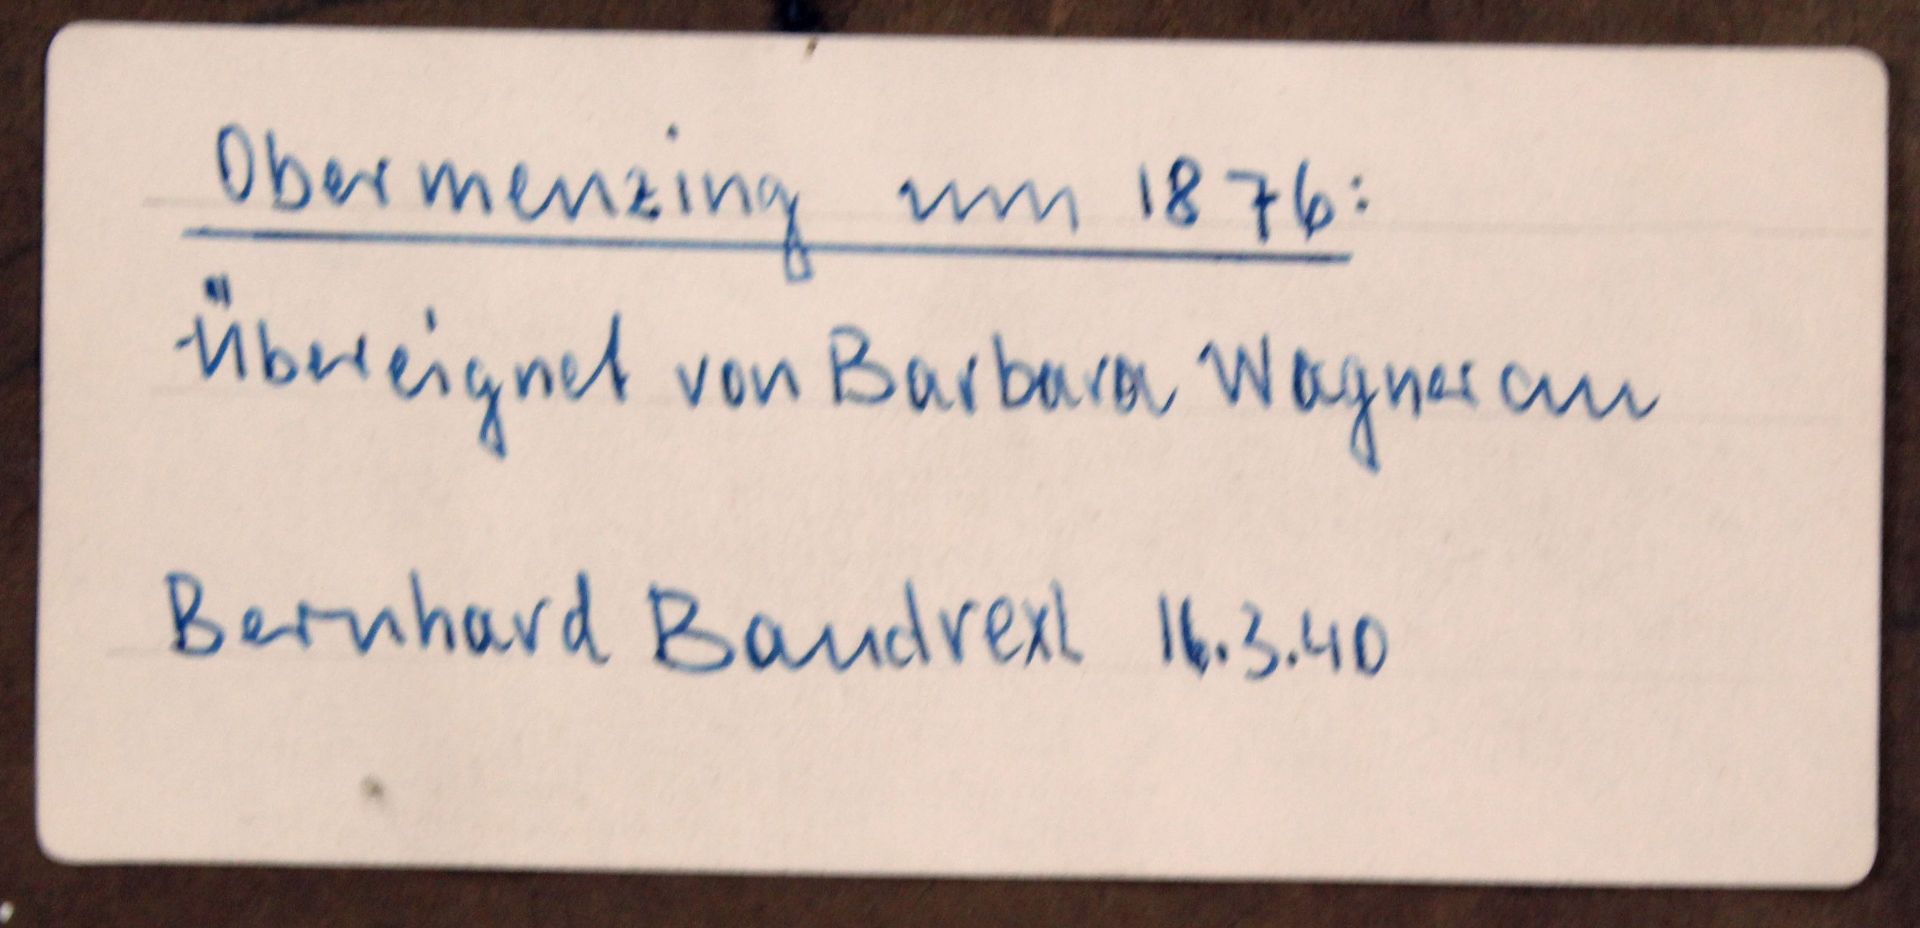 Obermenzing um 1876:
Übereignet von Barbara Wagner an
Bernhard Baudrexl 16.3.40